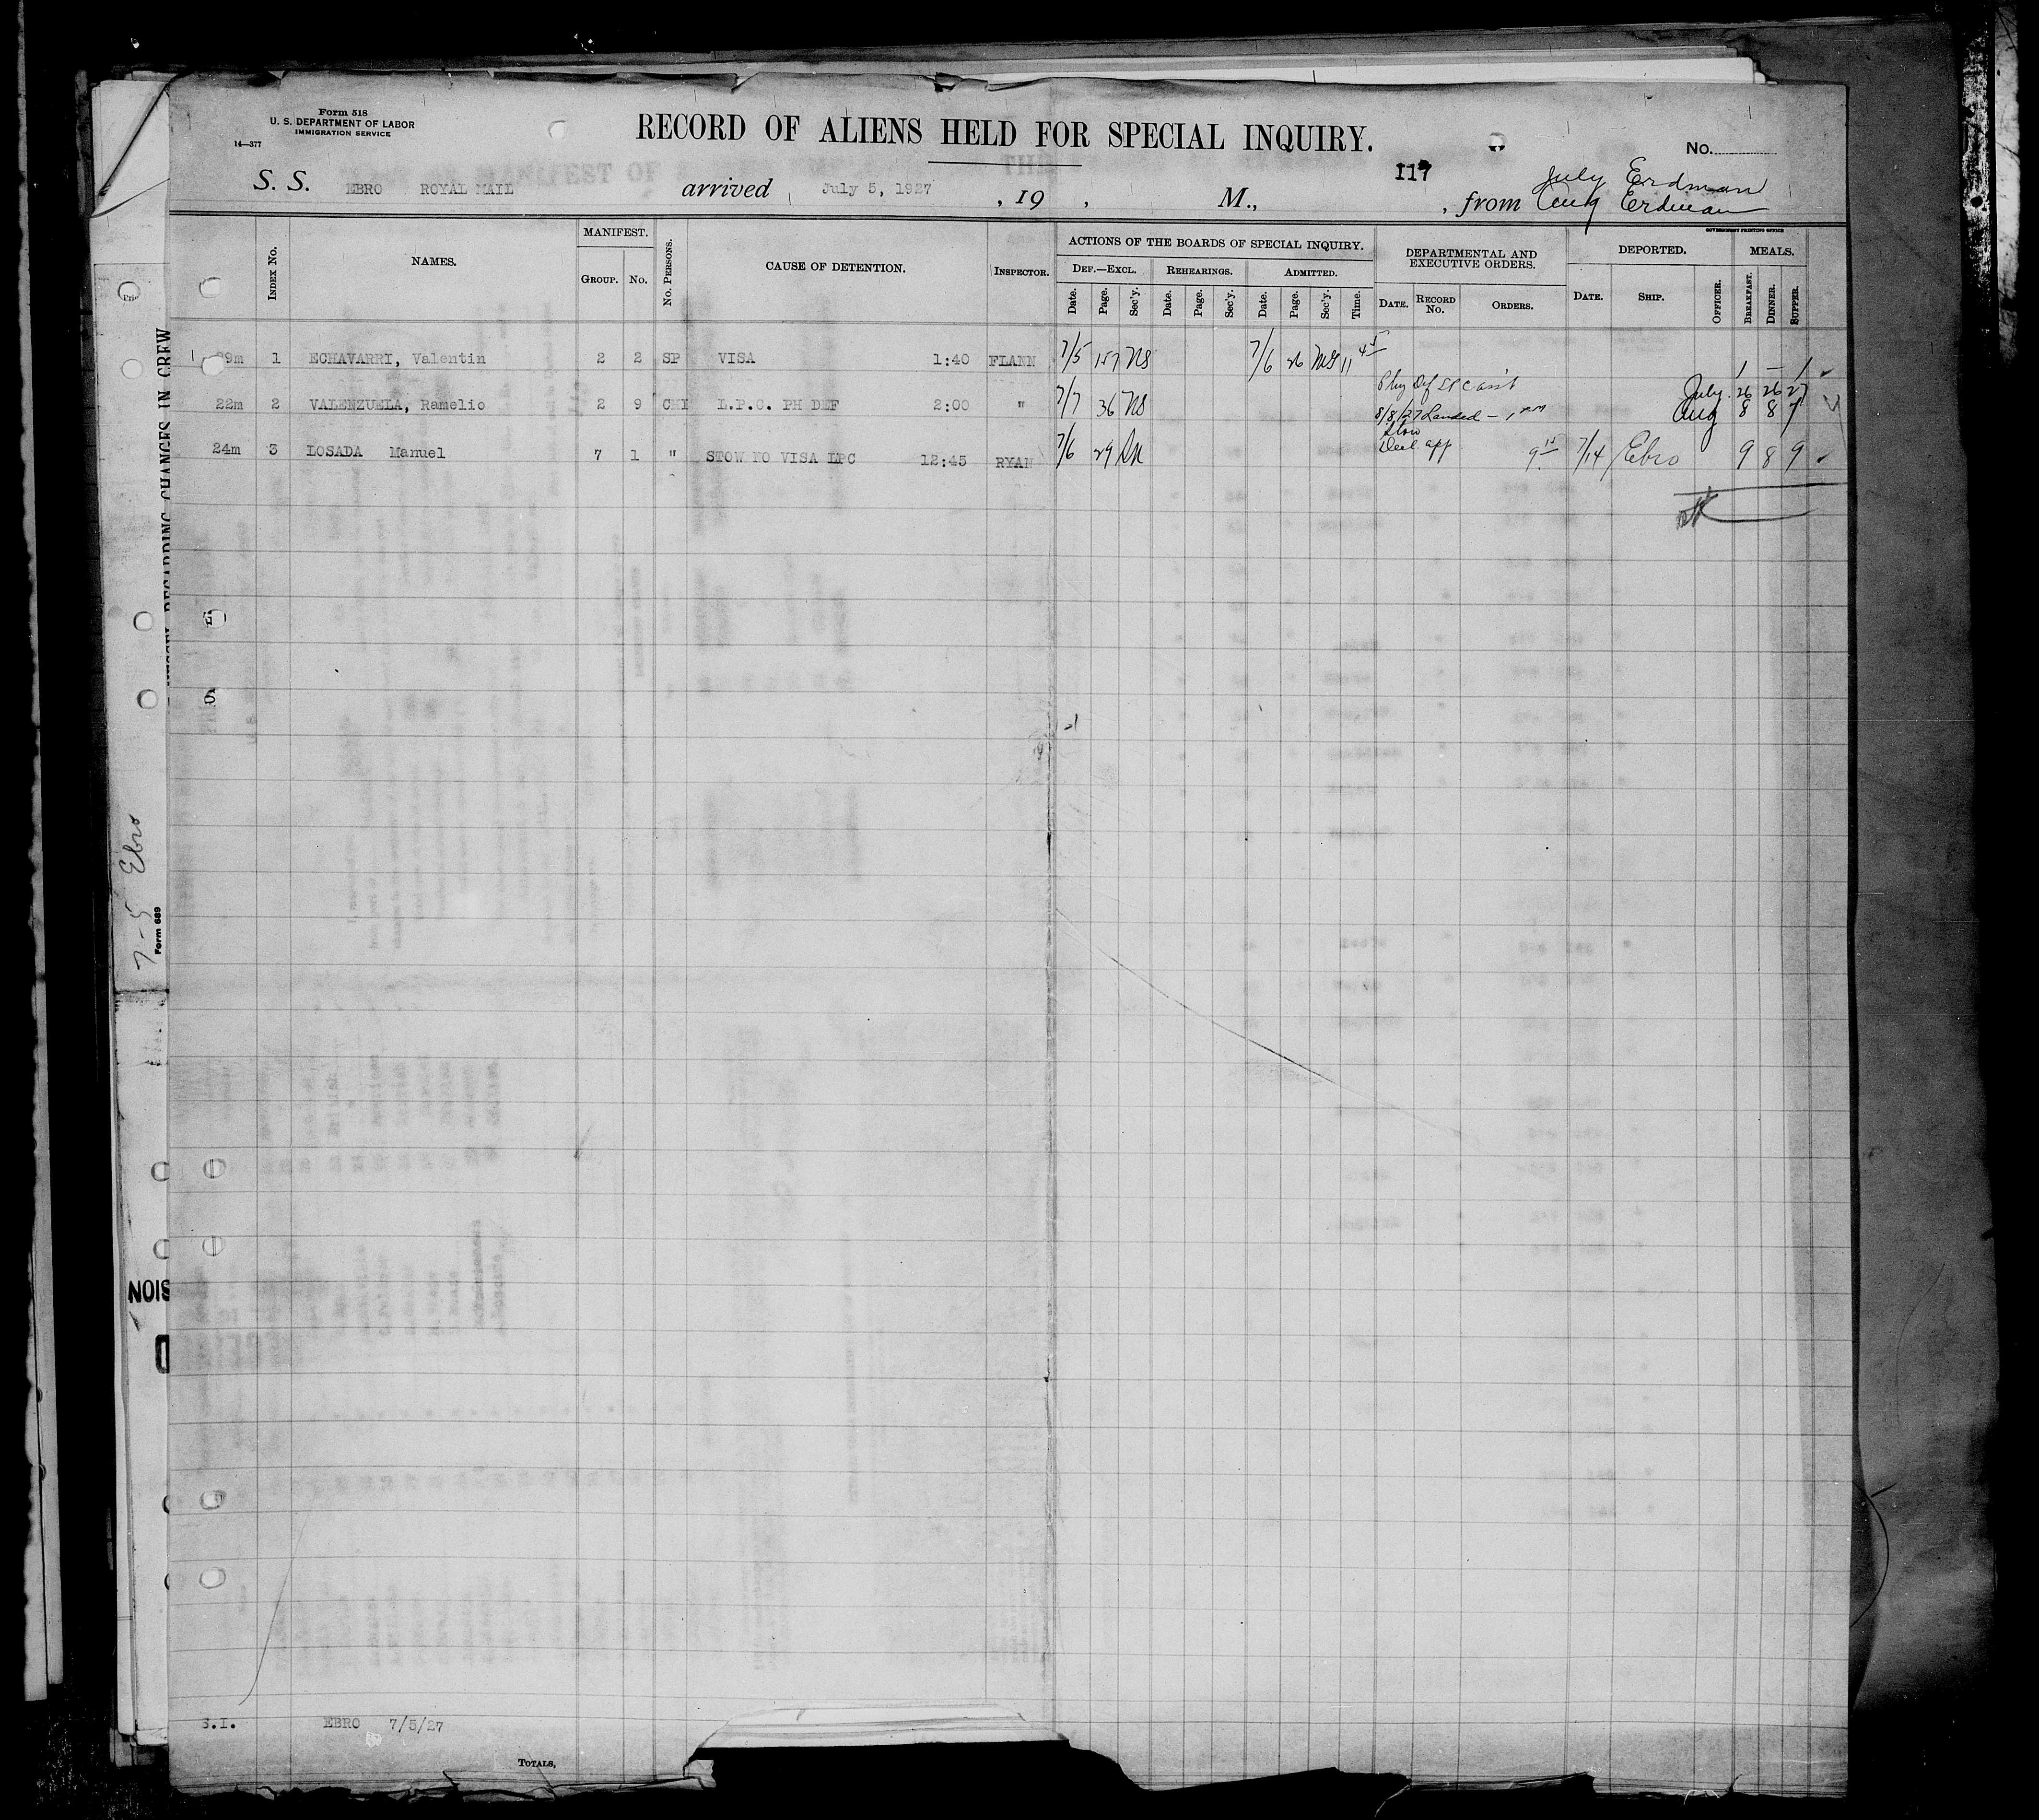 Form 518
U. S. DEPARTMENT OF LABOR
IMMIGRATION SERVICE
14—377
RECORD OF ALIENS HELD FOR SPECIAL INQUIRY.
No.
117
S. S. EBRO ROYAL MAIL arrived July 5, 1927, 19 , M., , from
July Erdman
Aug Erdman
GOVERNMENT PRINTING OFFICE
INDEX No. NAMES. MANIFEST. GROUP. No. No. PERSONS. CAUSE OF DETENTION. INSPECTOR.
ACTIONS OF THE BOARDS OF SPECIAL INQUIRY.
DEF.—EXCL. REHEARINGS. ADMITTED.
Date. Page. Sec'y. Date. Page. Sec'y. Date. Page. Sec'y. Time.
DEPARTMENTAL AND EXECUTIVE ORDERS.
DATE. RECORD No. ORDERS.
DEPORTED.
DATE. SHIP. OFFICER.
MEALS.
BREAKFAST. DINNER. SUPPER.
29m 1 ECHAVARRI, Valentin 2 2 SP VISA 1:40 FLANN 7/5 157 NS 7/6 26 MS 11 45 1 — 1
Phy Def LPC
July 26 26 27
22m 2 VALENZUELA, Ramelio 2 9 CHI L.P.C. PH DEF 2:00 " 7/7 36 NS 8/8/27 Landed – 1 PM Aug 8 8 7
Stow
24m 3 LOSADA Manuel 7 1 " STOW NO VISA LPC 12:45 RYAN 7/6 29 app 9 15 7/14 Ebro 9 8 9
REGARDING CHANGES IN CREW
7-5 Ebro
Form 689
S.I. EBRO 7/5/27
TOTALS,